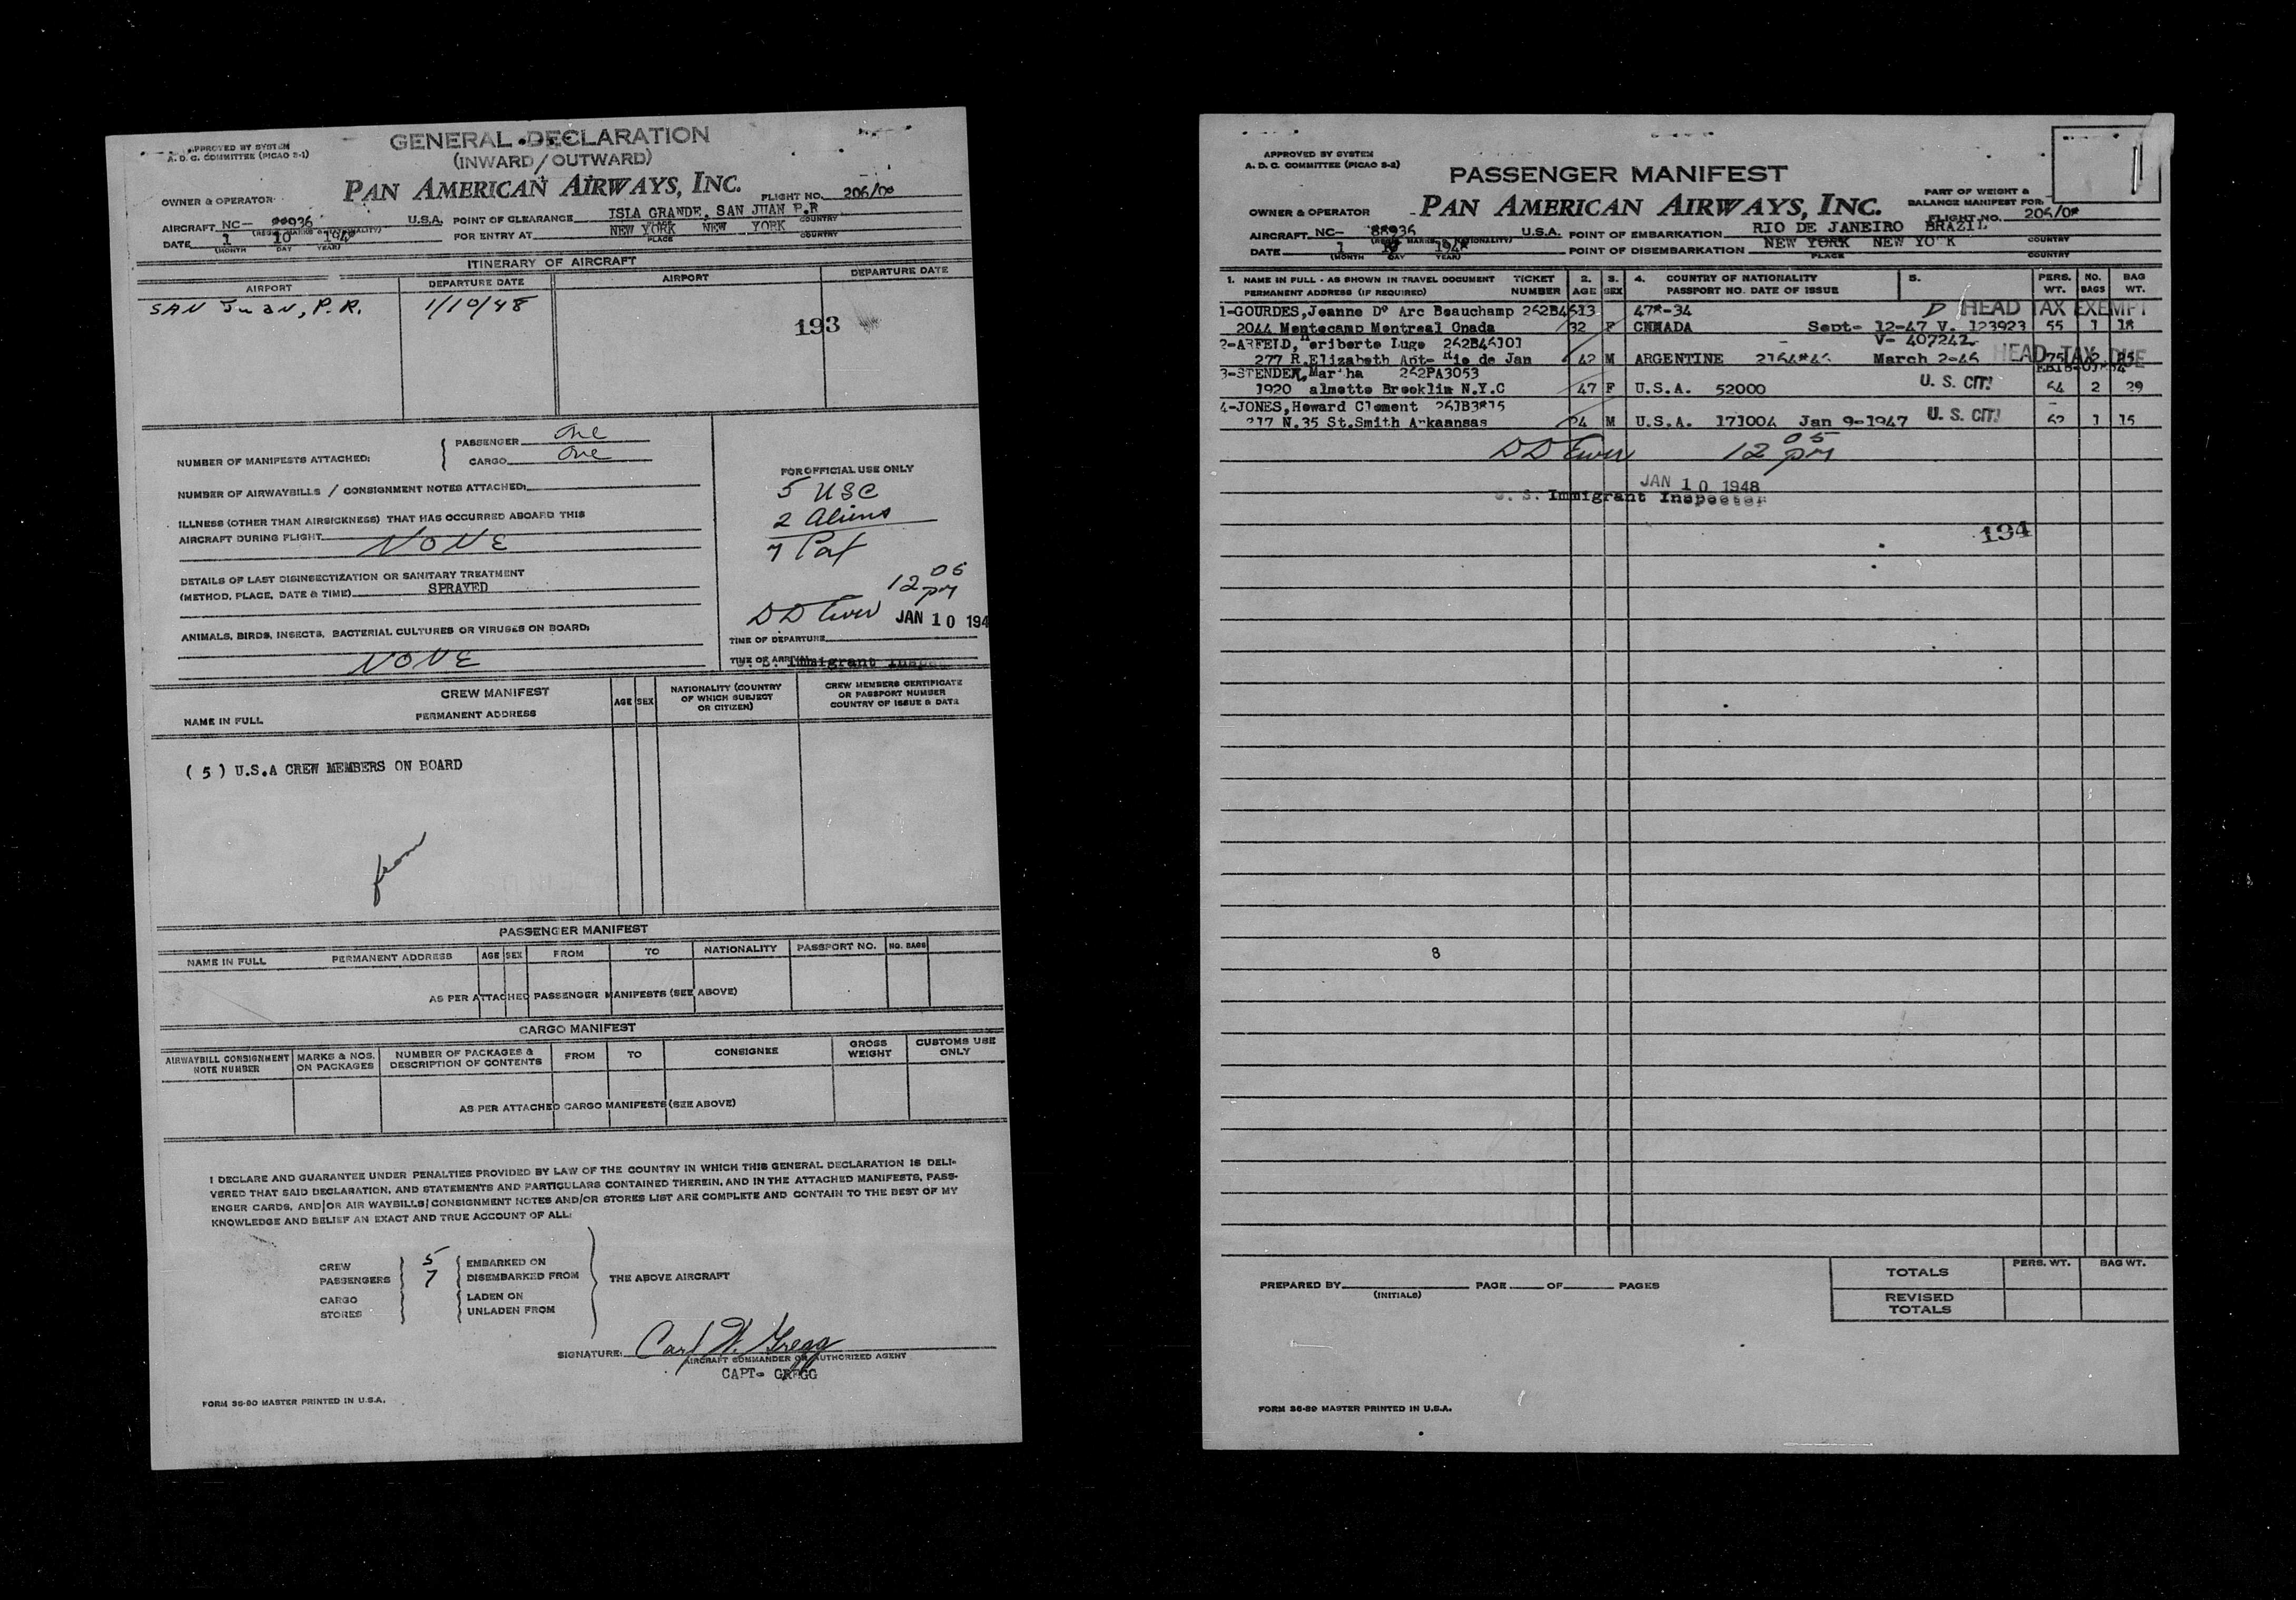 APPROVED BY SYSTEM
A. D. C. COMMITTEE (PICAO S-1)
GENERAL DECLARATION
(INWARD/OUTWARD)
OWNER & OPERATOR
PAN AMERICAN AIRWAYS, INC.
FLIGHT NO. 206/
AIRCRAFT NC- 88936 U.S.A. POINT OF CLEARANCE ISLA GRANDE, SAN JUAN P.R
PLACE COUNTRY
DATE 1 10 1948 FOR ENTRY AT NEW YORK NEW YORK
(MONTH DAY YEAR) PLACE COUNTRY
ITINERARY OF AIRCRAFT
AIRPORT DEPARTURE DATE AIRPORT DEPARTURE DATE
SAN Juan, P.R. 1/10/48
193
NUMBER OF MANIFESTS ATTACHED:
PASSENGER One
CARGO One
NUMBER OF AIRWAYBILLS / CONSIGNMENT NOTES ATTACHED:
ILLNESS (OTHER THAN AIRSICKNESS) THAT HAS OCCURRED ABOARD THIS
AIRCRAFT DURING FLIGHT NONE
DETAILS OF LAST DISINSECTIZATION OR SANITARY TREATMENT
(METHOD, PLACE, DATE & TIME) SPRAYED
ANIMALS, BIRDS, INSECTS, BACTERIAL CULTURES OR VIRUSES ON BOARD:
NONE
FOR OFFICIAL USE ONLY
5 USC
2 Aliens
7 Pax
12 05 pm
JAN 10 194
TIME OF DEPARTURE
TIME OF ARRIVAL
U. S. Immigrant Inspec
CREW MANIFEST
NAME IN FULL PERMANENT ADDRESS AGE SEX NATIONALITY (COUNTRY OF WHICH SUBJECT OR CITIZEN) CREW MEMBERS CERTIFICATE OR PASSPORT NUMBER COUNTRY OF ISSUE & DATE
( 5 ) U.S.A CREW MEMBERS ON BOARD
PASSENGER MANIFEST
NAME IN FULL PERMANENT ADDRESS AGE SEX FROM TO NATIONALITY PASSPORT NO. NO. BAGS
AS PER ATTACHED PASSENGER MANIFESTS (SEE ABOVE)
CARGO MANIFEST
AIRWAYBILL CONSIGNMENT NOTE NUMBER MARKS & NOS. ON PACKAGES NUMBER OF PACKAGES & DESCRIPTION OF CONTENTS FROM TO CONSIGNEE GROSS WEIGHT CUSTOMS USE ONLY
AS PER ATTACHED CARGO MANIFESTS (SEE ABOVE)
I DECLARE AND GUARANTEE UNDER PENALTIES PROVIDED BY LAW OF THE COUNTRY IN WHICH THIS GENERAL DECLARATION IS DELI-
VERED THAT SAID DECLARATION, AND STATEMENTS AND PARTICULARS CONTAINED THEREIN, AND IN THE ATTACHED MANIFESTS, PASS-
ENGER CARDS, AND/OR AIR WAYBILLS/CONSIGNMENT NOTES AND/OR STORES LIST ARE COMPLETE AND CONTAIN TO THE BEST OF MY
KNOWLEDGE AND BELIEF AN EXACT AND TRUE ACCOUNT OF ALL:
CREW 5 EMBARKED ON
PASSENGERS 7 DISEMBARKED FROM THE ABOVE AIRCRAFT
CARGO LADEN ON
STORES UNLADEN FROM
SIGNATURE: Carl W. Gregg
AIRCRAFT COMMANDER OR AUTHORIZED AGENT
CAPT- GREGG
FORM 36-90 MASTER PRINTED IN U.S.A.
APPROVED BY SYSTEM
A. D. C. COMMITTEE (PICAO S-2)
PASSENGER MANIFEST
OWNER & OPERATOR
PAN AMERICAN AIRWAYS, INC.
PART OF WEIGHT &
BALANCE MANIFEST FOR:
FLIGHT NO. 206/
AIRCRAFT NC- 88936 U.S.A. POINT OF EMBARKATION RIO DE JANEIRO BRAZIL
DATE 1 10 1948 POINT OF DISEMBARKATION NEW YORK NEW YO K
(MONTH DAY YEAR) PLACE COUNTRY
1. NAME IN FULL - AS SHOWN IN TRAVEL DOCUMENT TICKET 2. 3. 4. COUNTRY OF NATIONALITY 5. PERS. NO. BAG
PERMANENT ADDRESS (IF REQUIRED) NUMBER AGE SEX PASSPORT NO. DATE OF ISSUE WT. BAGS WT.
1-GOURDES, Jeanne D' Arc Beauchamp 262B4613 478-34 D HEAD TAX EXEMPT
2044 Mentecamp Montreal Cnada 32 F CNNADA Sept- 12-47 V. 123923 55 1 18
2-ARFELD, Heriberte Luge 262B46101 V- 407242
277 R.Elizabeth Apt- Rio de Jan 42 M ARGENTINE 2164846 March 2-46 HEAD TAX DUE 75 2 25
3-STENDER, Martha 262PA3053
1920 almette Brooklin N.Y.C 47 F U.S.A. 52000 U. S. CIT. 64 2 29
4-JONES, Howard Clement 261B3815
217 N.35 St.Smith Arkaansas 24 M U.S.A. 171004 Jan 9-1947 U. S. CIT. 62 1 15
12 05 pm
JAN 10 1948
U. S. Immigrant Inspector
194
8
PREPARED BY PAGE OF PAGES
(INITIALS)
PERS. WT. BAG WT.
TOTALS
REVISED TOTALS
FORM 36-89 MASTER PRINTED IN U.S.A.